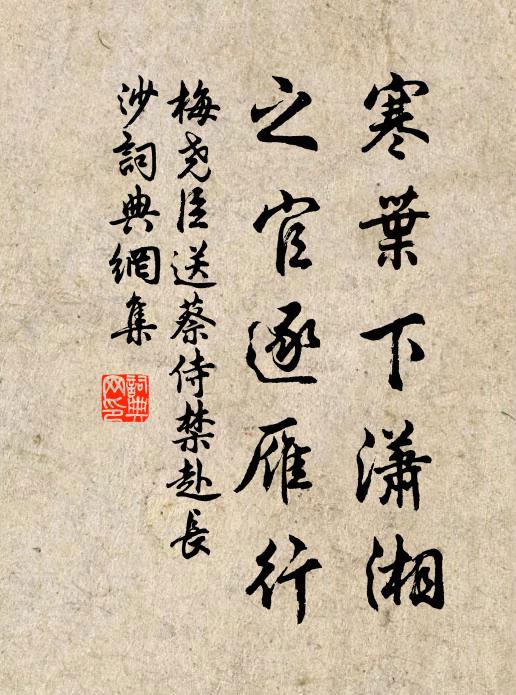 寒葉下瀟湘
之官逐雁行
梅尧臣送蔡侍禁赴長
沙詞典網集
詞典
网印